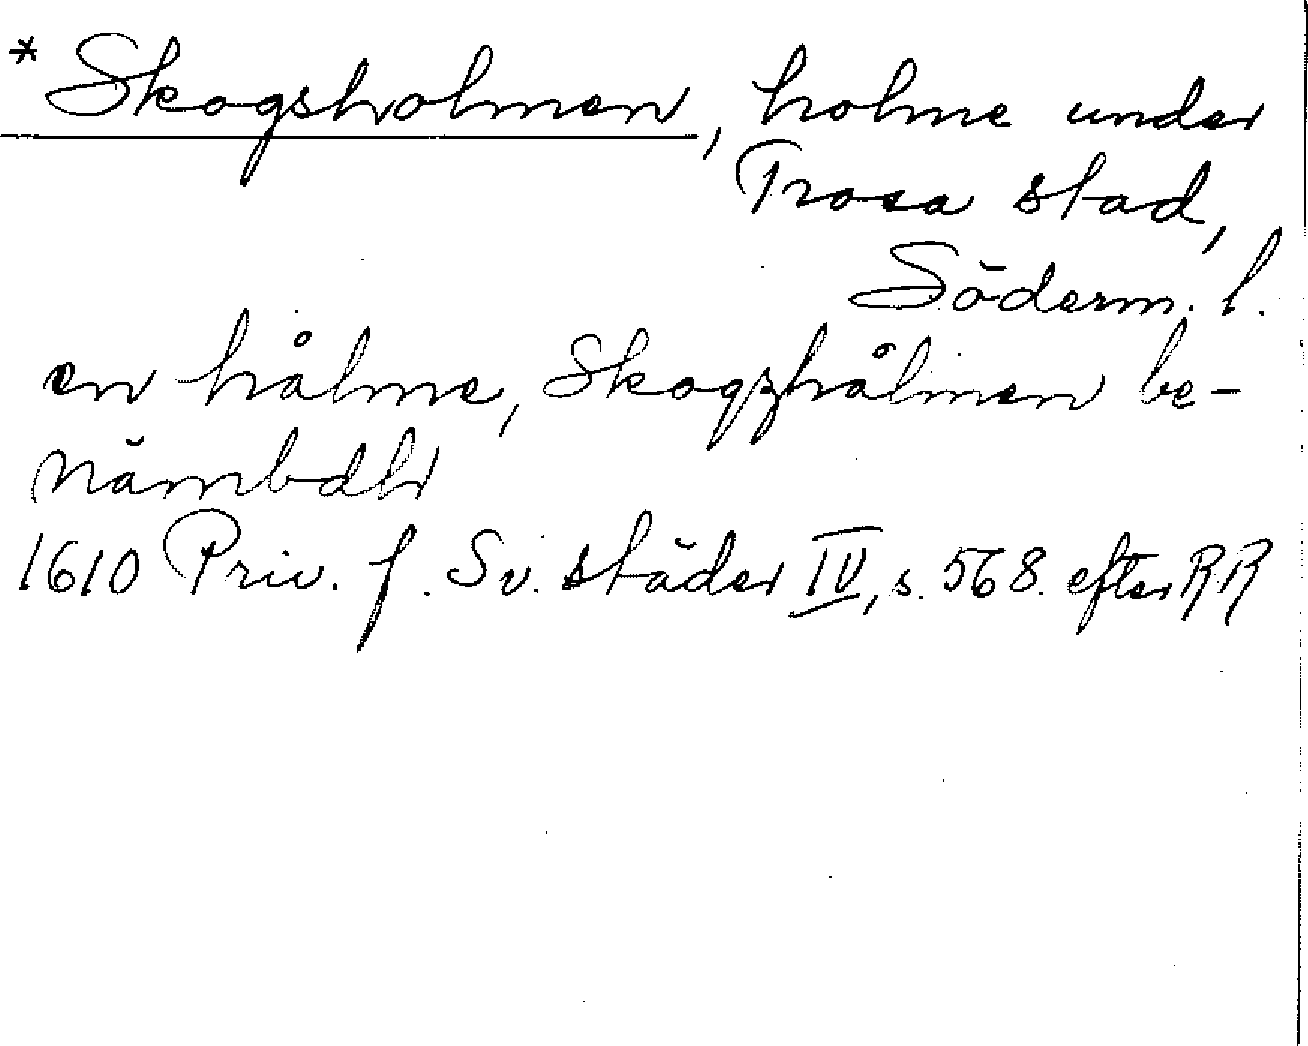 * Skogsholmen, holme under
Trosa stad,
Söderm. l.
en hålme, Skogzhålmen be-
nämbdh
1610 Priv. f. Sv. städer IV, s. 568. efter RR